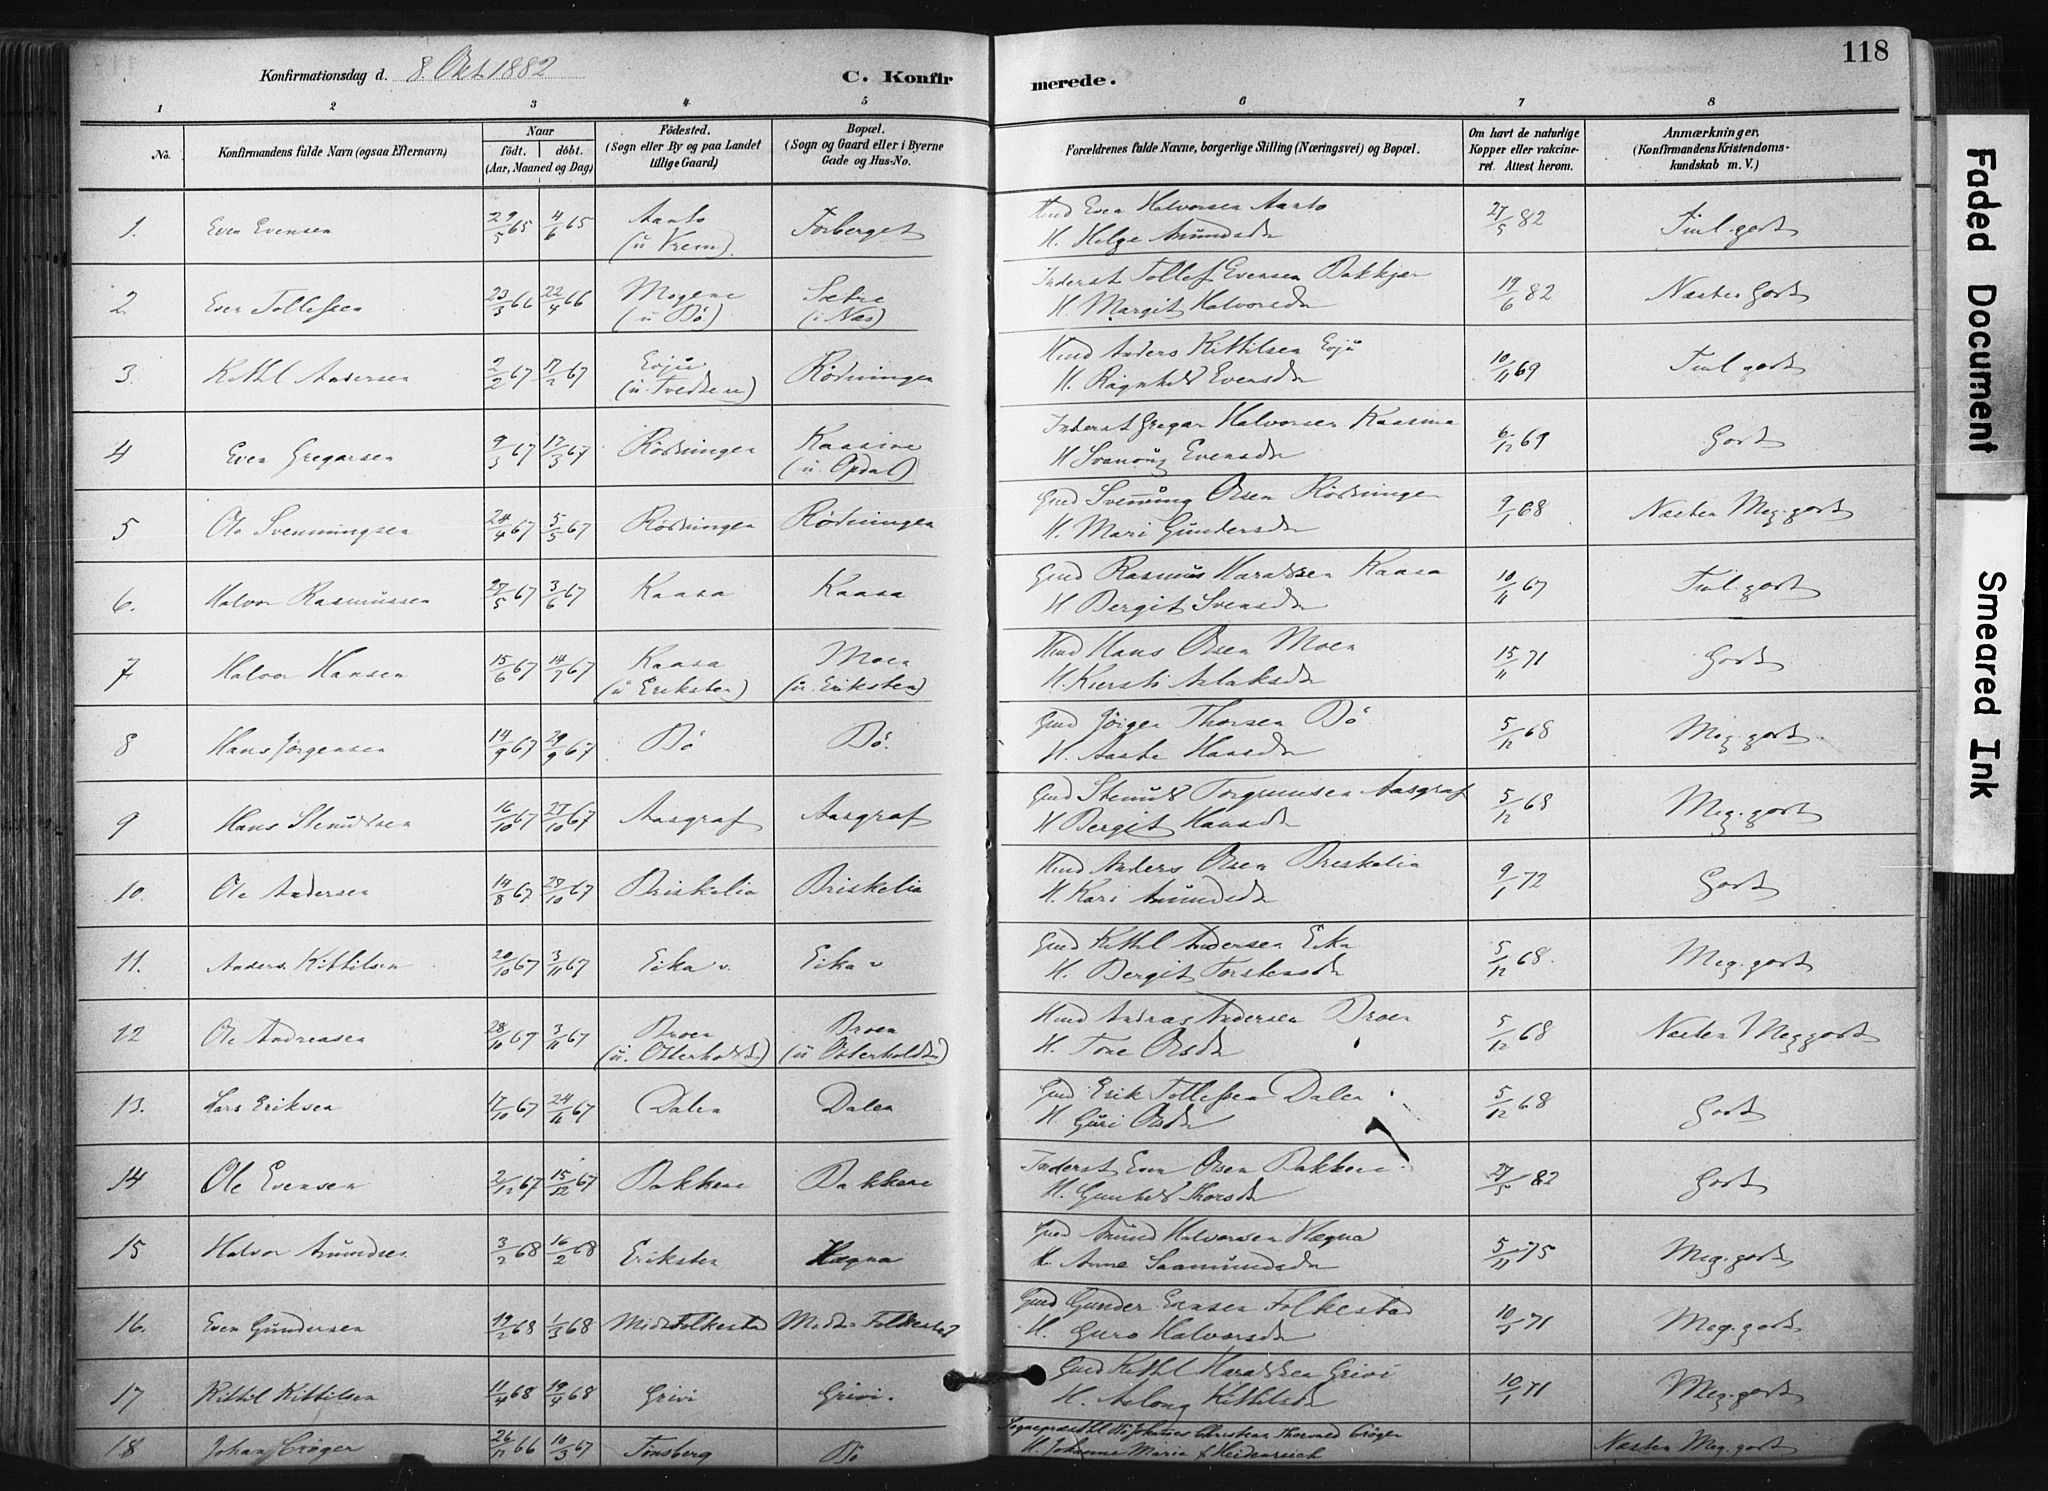 118
Konfirmationsdag d. 8 Okt 1882 C. Konfirmerede.
1 2 3 4 5 6 7 8
No. Konfirmandens fulde Navn (ogsaa Efternavn) Naar født. døbt. (Aar, Maaned og Dag) Födested. (Sogn eller By og paa Landet tillige Gaard) Bopæl. (Sogn og Gaard eller i Byerne Gade og Hus-No. Forældrenes fulde Navne, borgerlige Stilling (Næringsvei) og Bopæl. Om havt de naturlige Kopper eller vakcineret. Attest herom. Anmærkninger. (Konfirmandens Kristendomskundskab m. V.)
1. Even Evensen 29/5 65 4/6 65 Aarto (u Vreim) Forberget Hmd Even Halvorsen Aarto 27/5 82
H. Helge Amundsdr
2. Even Tollefsen 23/3 66 22/4 66 Mogene (u Bö.) Sætre (i Næs) Inderst Tollef Evensen Bakkjen 19/6 82 Næsten Godt
H. Margit Halvorsdr
3. Kittil Andersen 2/2 67 17/2 67 Evju (u. Tvedten) Rödningen Hmd Anders Kittilsen Evju 10/11 69
H. Ragnhild Evensdr
4 Even Gregarsen 9/3 67 17/3 67 Rödningen Kaasine (u. Opdal) Inderst Gregar Halvorsen Kaasine 6/12 69 Godt
H Svanoug Evensdr
5 Ole Svenningsen 24/4 67 5/5 67 Rödningen Rödningen Gmd Svenning Olsen Rödningen 9/1 68 Næsten Meg. godt
H. Mari Gundersdr
6. Halvor Rasmussen 27/5 67 3/6 67 Kaasa Kaasa Gmd Rasmus Haraldsen Kaasa 10/11 67
H Bergit Svensdr
7 Halvor Hansen 15/6 67 14/7 67 Kaasa (u Eriksten) Moen (u. Eriksten) Hmd Hans Olsen Moen 15/11 71 Godt
H. Kiersti Aslaksdr
8 Hans Jörgensen 14/9 67 29/9 67 Bö Bö. Gmd Jörgen Thorsen Bö 5/12 68 Meg. godt
H. Aaste Hansdr
9 Hans Stenulsen 16/10 67 27/10 67 Aasgraf Aasgraf Gmd Stenul Torgrimsen Aasgraf 5/12 68 Meg. godt
H Bergit Hansdr
10. Ole Andersen 19/8 67 28/10 67 Briskelia Briskelia Hmd Anders Olsen Breskelia 9/1 72 Godt
H. Kari Amundsdr
11. Anders Kittilsen 20/10 67 3/11 67 Eika v. Eika v Gmd Kittil Andersen Eika 5/12 68. Meg. godt
H. Bergit Torstensdr
12 Ole Andreasen 28/10 67 3/11 67 Broen (u. Otterholdt) Broen (u Otterholdt) Hmd Andreas Andersen Broen 5/12 68 Næsten Meg godt
H. Tone Olsdr
13. Lars Eriksen 17/10 67 24/11 67 Dalen Dalen Gmd Erik Tollefsen Dalen 5/12 68 Godt
H Guri Olsdr
14 Ole Evensen 2/12 67 15/12 67 Bakkene Bakkene Inderst Even Olsen Bakkene 27/5 82 Godt
H. Gunhild Thorsdr
15 Halvor Amundsen 3/2 68 16/2 68 Eriksten Hægna Gmd Amund Halvorsen Hægna 5/11 75 Meg. godt
H. Anne Saamundsdr
16. Even Gundersen 19/2 68 1/3 68 Midt Folkestad Midt. Folkestad Gmd Gunder Evensen Folkestad 10/1 71 Meg. godt
H. Guro Halvorsdr
17 Kittil Kittilsen 11/4 68 19/4 68 Grivi Grivi. Gmd Kittil Haraldsen Grivi 10/1 71 Meg. godt
H. Aslong Kittilsdr
18 Johan Cröger 26/12 66 10/3 67 Tønsberg Bö Johannes Christian Thormod Cröger Næsten Meg. godt
H. Johanne Maria f Heidenreich
Faded Document
Smeared Ink